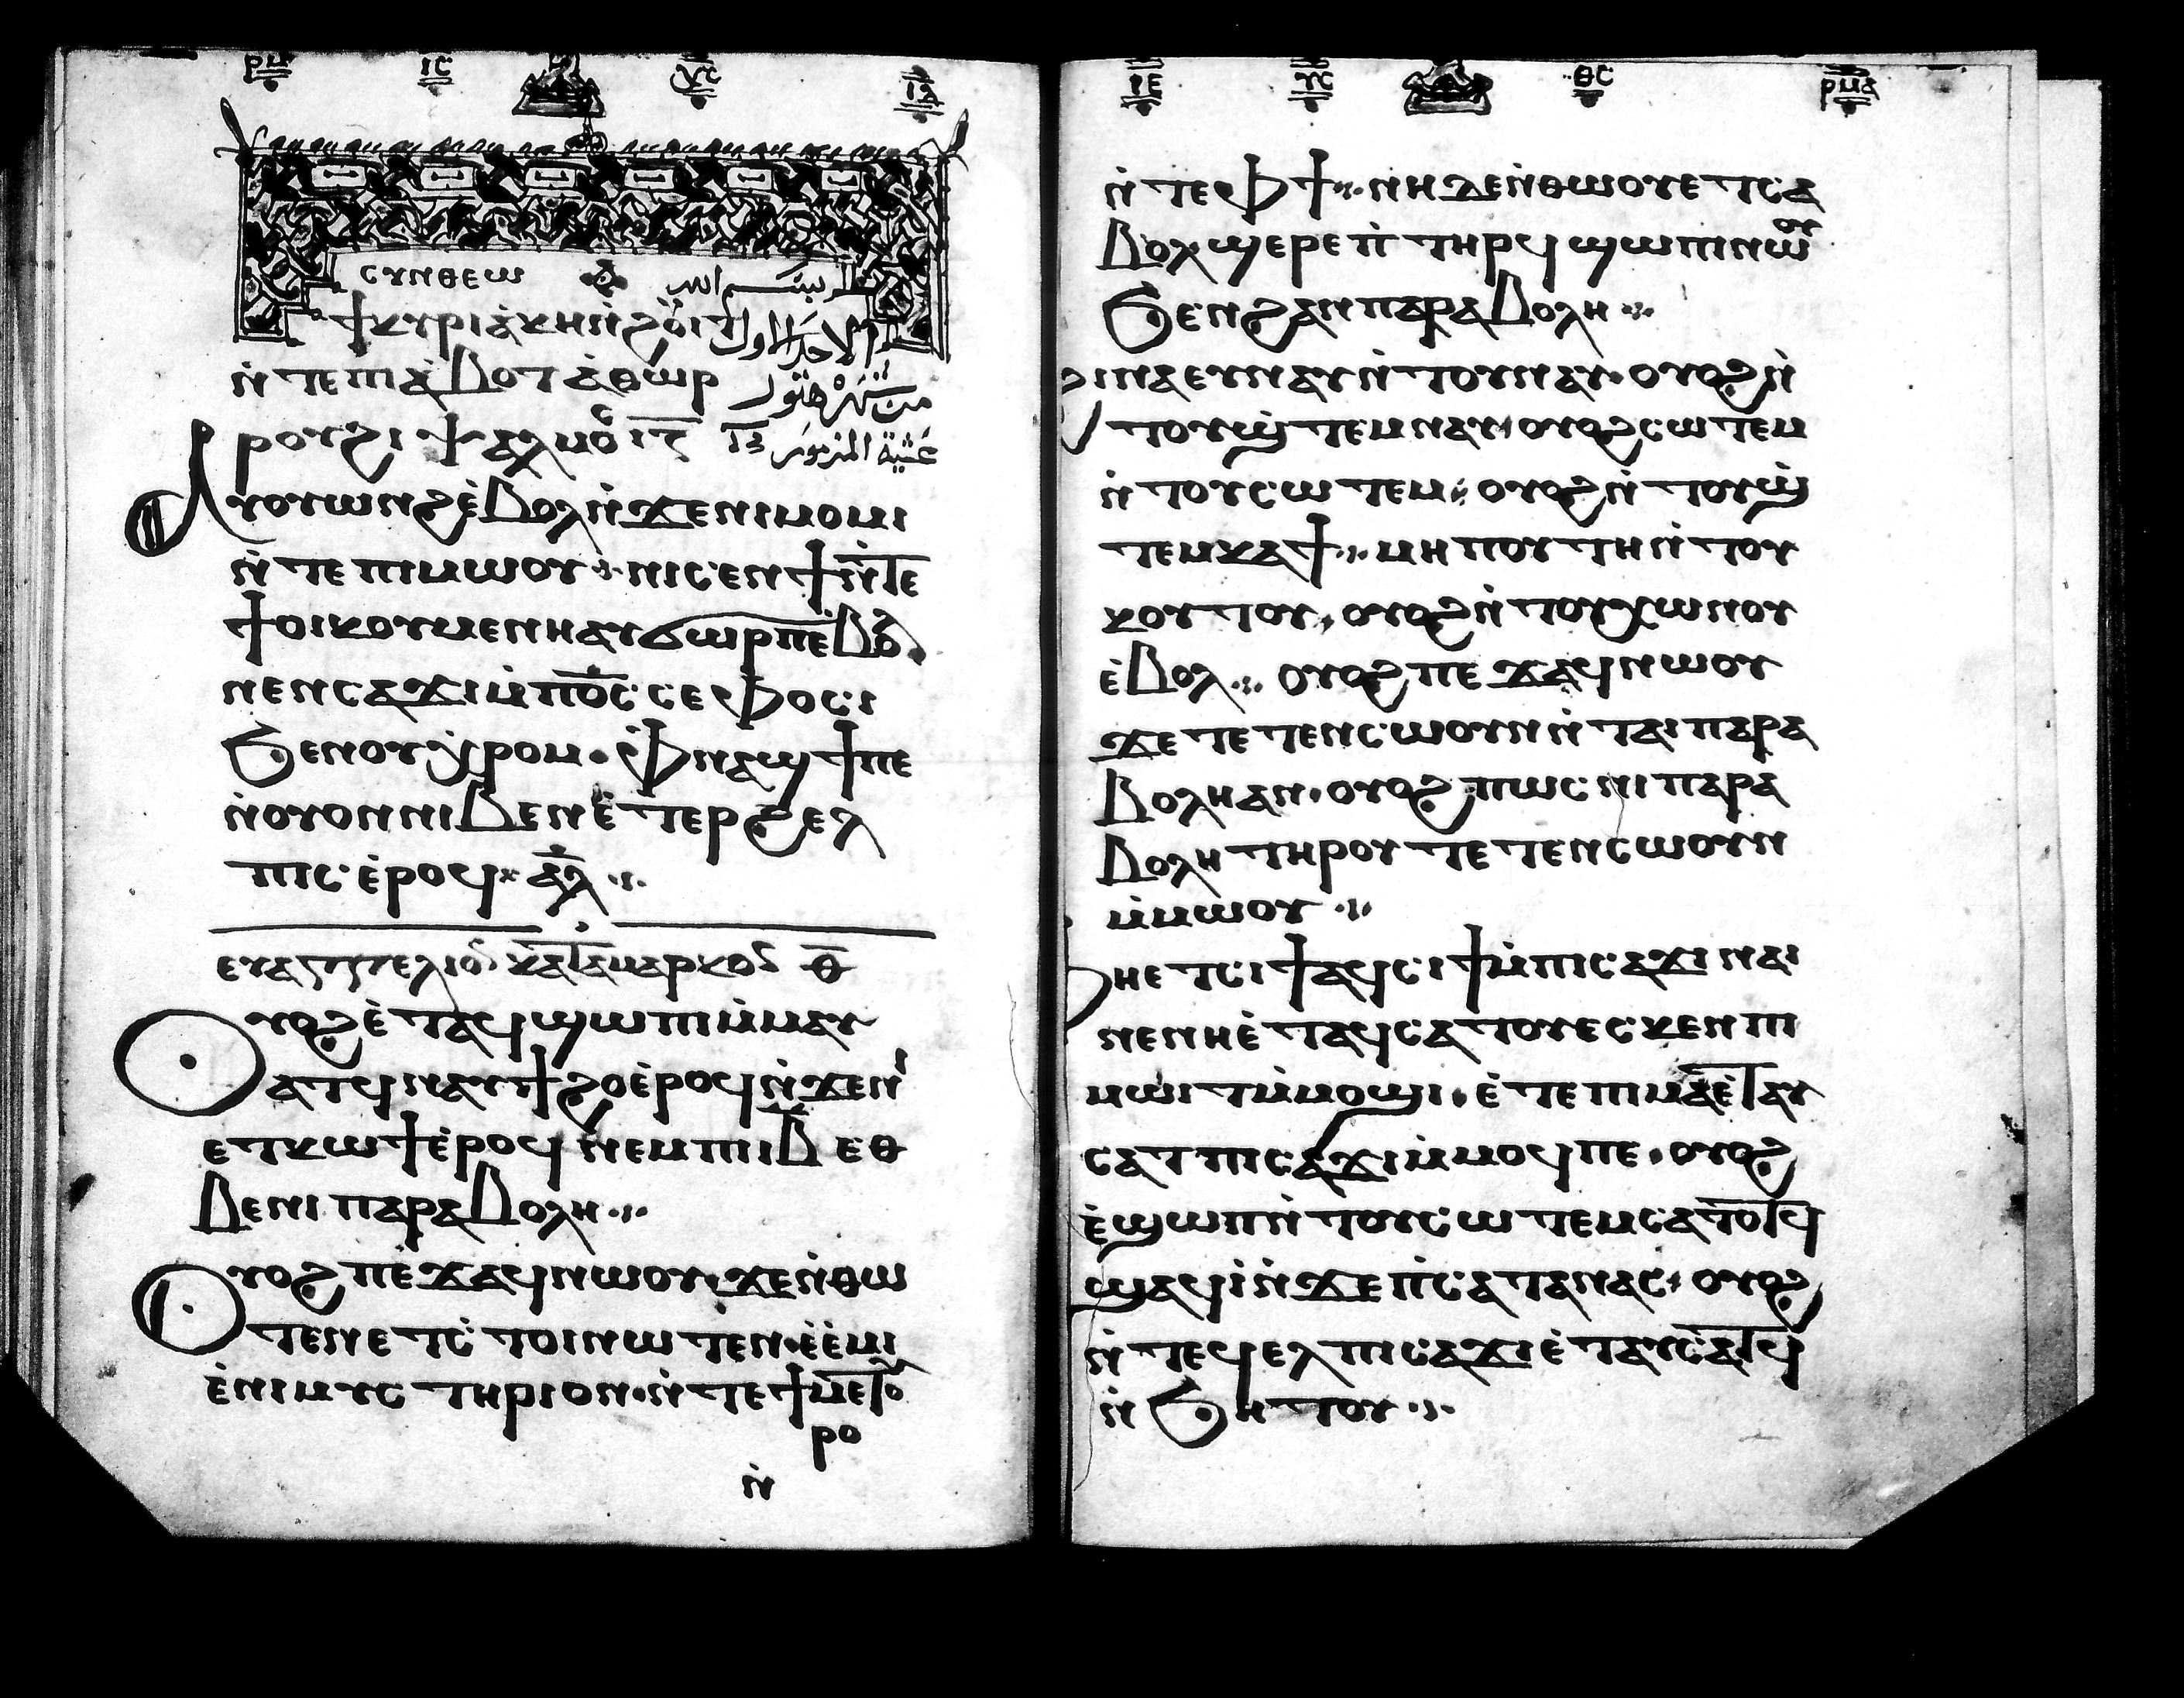 ⲣⲙ ⲓⲥ ⲭⲥ ⲓⲇ
ⲥⲩⲛⲑⲉⲱ بسم الله
ϯⲕⲩⲣⲓⲁⲕⲏ ⲛ̀ϩⲟⲩⲓϯ الاحد الاول
ⲛ̀ⲧⲉ ⲡⲓⲁ̀ⲃⲟⲧ ⲁ̀ⲑⲱⲣ من شهر هتور
ⲣⲟⲩϩⲓ ⲯⲁⲗⲙⲟⲥ ⲓⲍ عشية المزمور
ⲁⲩⲟⲩⲱⲛϩ ⲉ̀ⲃⲟⲗ ⲛ̀ϫⲉ ⲛⲓⲙⲟⲩⲙⲓ
ⲛ̀ⲧⲉ ⲡⲓⲙⲱⲟⲩ ⲛⲓⲥⲉⲛϯ ⲛ̀ⲧⲉ
ϯⲟⲓⲕⲟⲩⲙⲉⲛⲏ ⲁⲩϭⲱⲣⲡ ⲉ̀ⲃⲟⲗ
ⲛⲉⲛⲥⲁϫⲓ ⲙ̀ⲡϭⲟⲥ ⲥⲉⲫⲟⲥⲓ
ϧⲉⲛ ⲟⲩⲭ̀ⲣⲟⲙ ⲫ̀ⲛⲁϣϯ ⲡⲉ
ⲛ̀ⲟⲩⲟⲛ ⲛⲓⲃⲉⲛ ⲉ̀ⲧⲉⲣϩⲉⲗ
ⲡⲓⲥ ⲉ̀ⲣⲟϥ ⲁⲗ
ⲉⲩⲁⲅⲅⲉⲗⲓⲟⲥ ⲕⲁⲧⲁ ⲙⲁⲣⲕⲟⲥ ⲑ
ⲟⲩⲟϩ ⲉ̀ⲧⲁϥϣⲱⲡⲓ ⲙ̀ⲙⲁⲩ
ⲁⲧϥ ⲛⲁⲩϯϩⲟ ⲉ̀ⲣⲟϥ ⲛ̀ϫⲉ ⲛⲏ
ⲉⲧⲕⲱϯ ⲉ̀ⲣⲟϥ ⲛⲉⲙ ⲡⲓⲓⲃ ⲉⲑ
ⲃⲉ ⲛⲓⲡⲁⲣⲁⲃⲟⲗⲏ
ⲟⲩⲟϩ ⲡⲉϫⲁϥ ⲛⲱⲟⲩ ϫⲉ ⲛ̀ⲑⲱ
ⲧⲉⲛ ⲉⲧⲥ̀ⲧⲟⲓ ⲛⲱⲧⲉⲛ ⲉ̀ⲉ̀ⲙⲓ
ⲉ̀ⲛⲓⲙⲩⲥⲧⲏⲣⲓⲟⲛ ⲛ̀ⲧⲉ ϯⲙⲉⲧⲟⲩ
ⲣⲟ
ⲛ̀
ⲓⲉ ⲩⲥ ⲑⲥ ⲣⲙⲁ
ⲛ̀ⲧⲉ ⲫϯ ⲛⲏ ⲇⲉ ⲛ̀ⲑⲱⲟⲩ ⲉⲧⲥⲁ
ⲃⲟⲗ ϣⲉⲣⲉ ⲡ̀ⲧⲏⲣϥ ϣⲱⲡⲓ ⲛⲱⲟⲩ
ϧⲉⲛ ϩⲁⲛⲡⲁⲣⲁⲃⲟⲗⲏ
ϩⲓⲛⲁ ⲉⲩⲛⲁⲩ ⲛ̀ⲧⲟⲩⲛⲁⲩ ⲟⲩⲟϩ ⲛ̀
ⲧⲟⲩϣ̀ⲧⲉⲙⲛⲁⲩ ⲟⲩⲟϩ ⲥⲱⲧⲉⲙ
ⲛ̀ⲧⲟⲩⲥⲱⲧⲉⲙ ⲟⲩⲟϩ ⲛ̀ⲧⲟⲩϣ̀
ⲧⲉⲙⲕⲁϯ ⲙⲏⲡⲟⲩⲧⲏ ⲛ̀ⲧⲟⲩ
ⲕⲟⲧⲟⲩ ⲟⲩⲟϩ ⲛ̀ⲧⲟⲩⲭⲱ ⲛⲟⲩ
ⲉ̀ⲃⲟⲗ ⲟⲩⲟϩ ⲡⲉϫⲁϥ ⲛⲱⲟⲩ
ϫⲉ ⲧⲉⲧⲉⲛⲥⲱⲟⲩⲛ ⲛ̀ⲧⲁⲓⲡⲁⲣⲁ
ⲃⲟⲗⲏ ⲁⲛ ⲟⲩⲟϩ ⲡⲱⲥ ⲛⲓⲡⲁⲣⲁ
ⲃⲟⲗⲏ ⲧⲏⲣⲟⲩ ⲧⲉⲧⲉⲛⲥⲱⲟⲩⲛ
ⲙ̀ⲙⲱⲟⲩ
ⲫⲏ ⲉⲧⲥⲓϯ ⲁϥⲥⲓϯ ⲙ̀ⲡⲓⲥⲁϫⲓ ⲛⲁⲓ
ⲛⲉ ⲛⲏ ⲉ̀ⲧⲁϥⲥⲁⲧⲟⲩ ⲉⲥⲕⲉⲛ ⲡⲓ
ⲙⲱⲓⲧ ⲙ̀ⲙⲟϣⲓ ⲉ̀ⲧⲉ ⲡⲓⲙⲁ ⲉ̀ⲧⲁⲩ
ⲥⲁⲧ ⲡⲓⲥⲁϫⲓ ⲙ̀ⲙⲟϥ ⲡⲉ ⲟⲩⲟϩ
ⲉ̀ϣⲱⲡ ⲛ̀ⲧⲟⲩⲥⲱⲧⲉⲙ ⲥⲁⲧⲟⲧϥ
ϣⲁϥⲓ̀ ⲛ̀ϫⲉ ⲡ̀ⲥⲁⲧⲁⲛⲁⲥ ⲟⲩⲟϩ
ⲛ̀ⲧⲉϥⲉⲗ ⲡⲓⲥⲁϫⲓ ⲉ̀ⲧⲁⲩⲥⲁⲧϥ
ⲛ̀ϧⲏⲧⲟⲩ